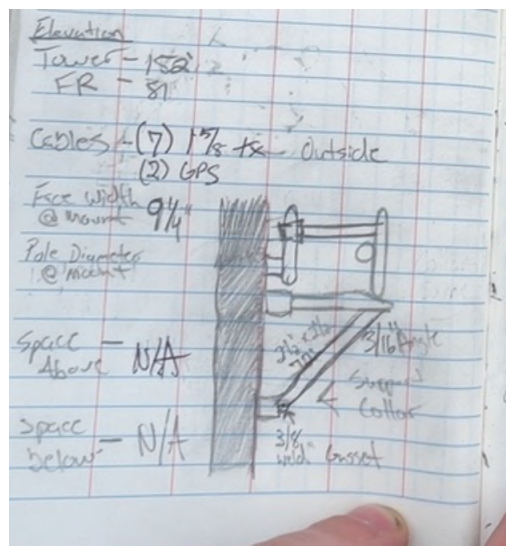 Elevation
Tower - 182'
FR - 81
Cables - (7) 1 5/8 tx - Outside
(2) GPS
Face Width
@ Mount 9 1/4"
Pole Diameter
@ mount
Space
Above - N/A
Space
below - N/A
3/16" Angle
Support
Collar
3/8
weld Gusset